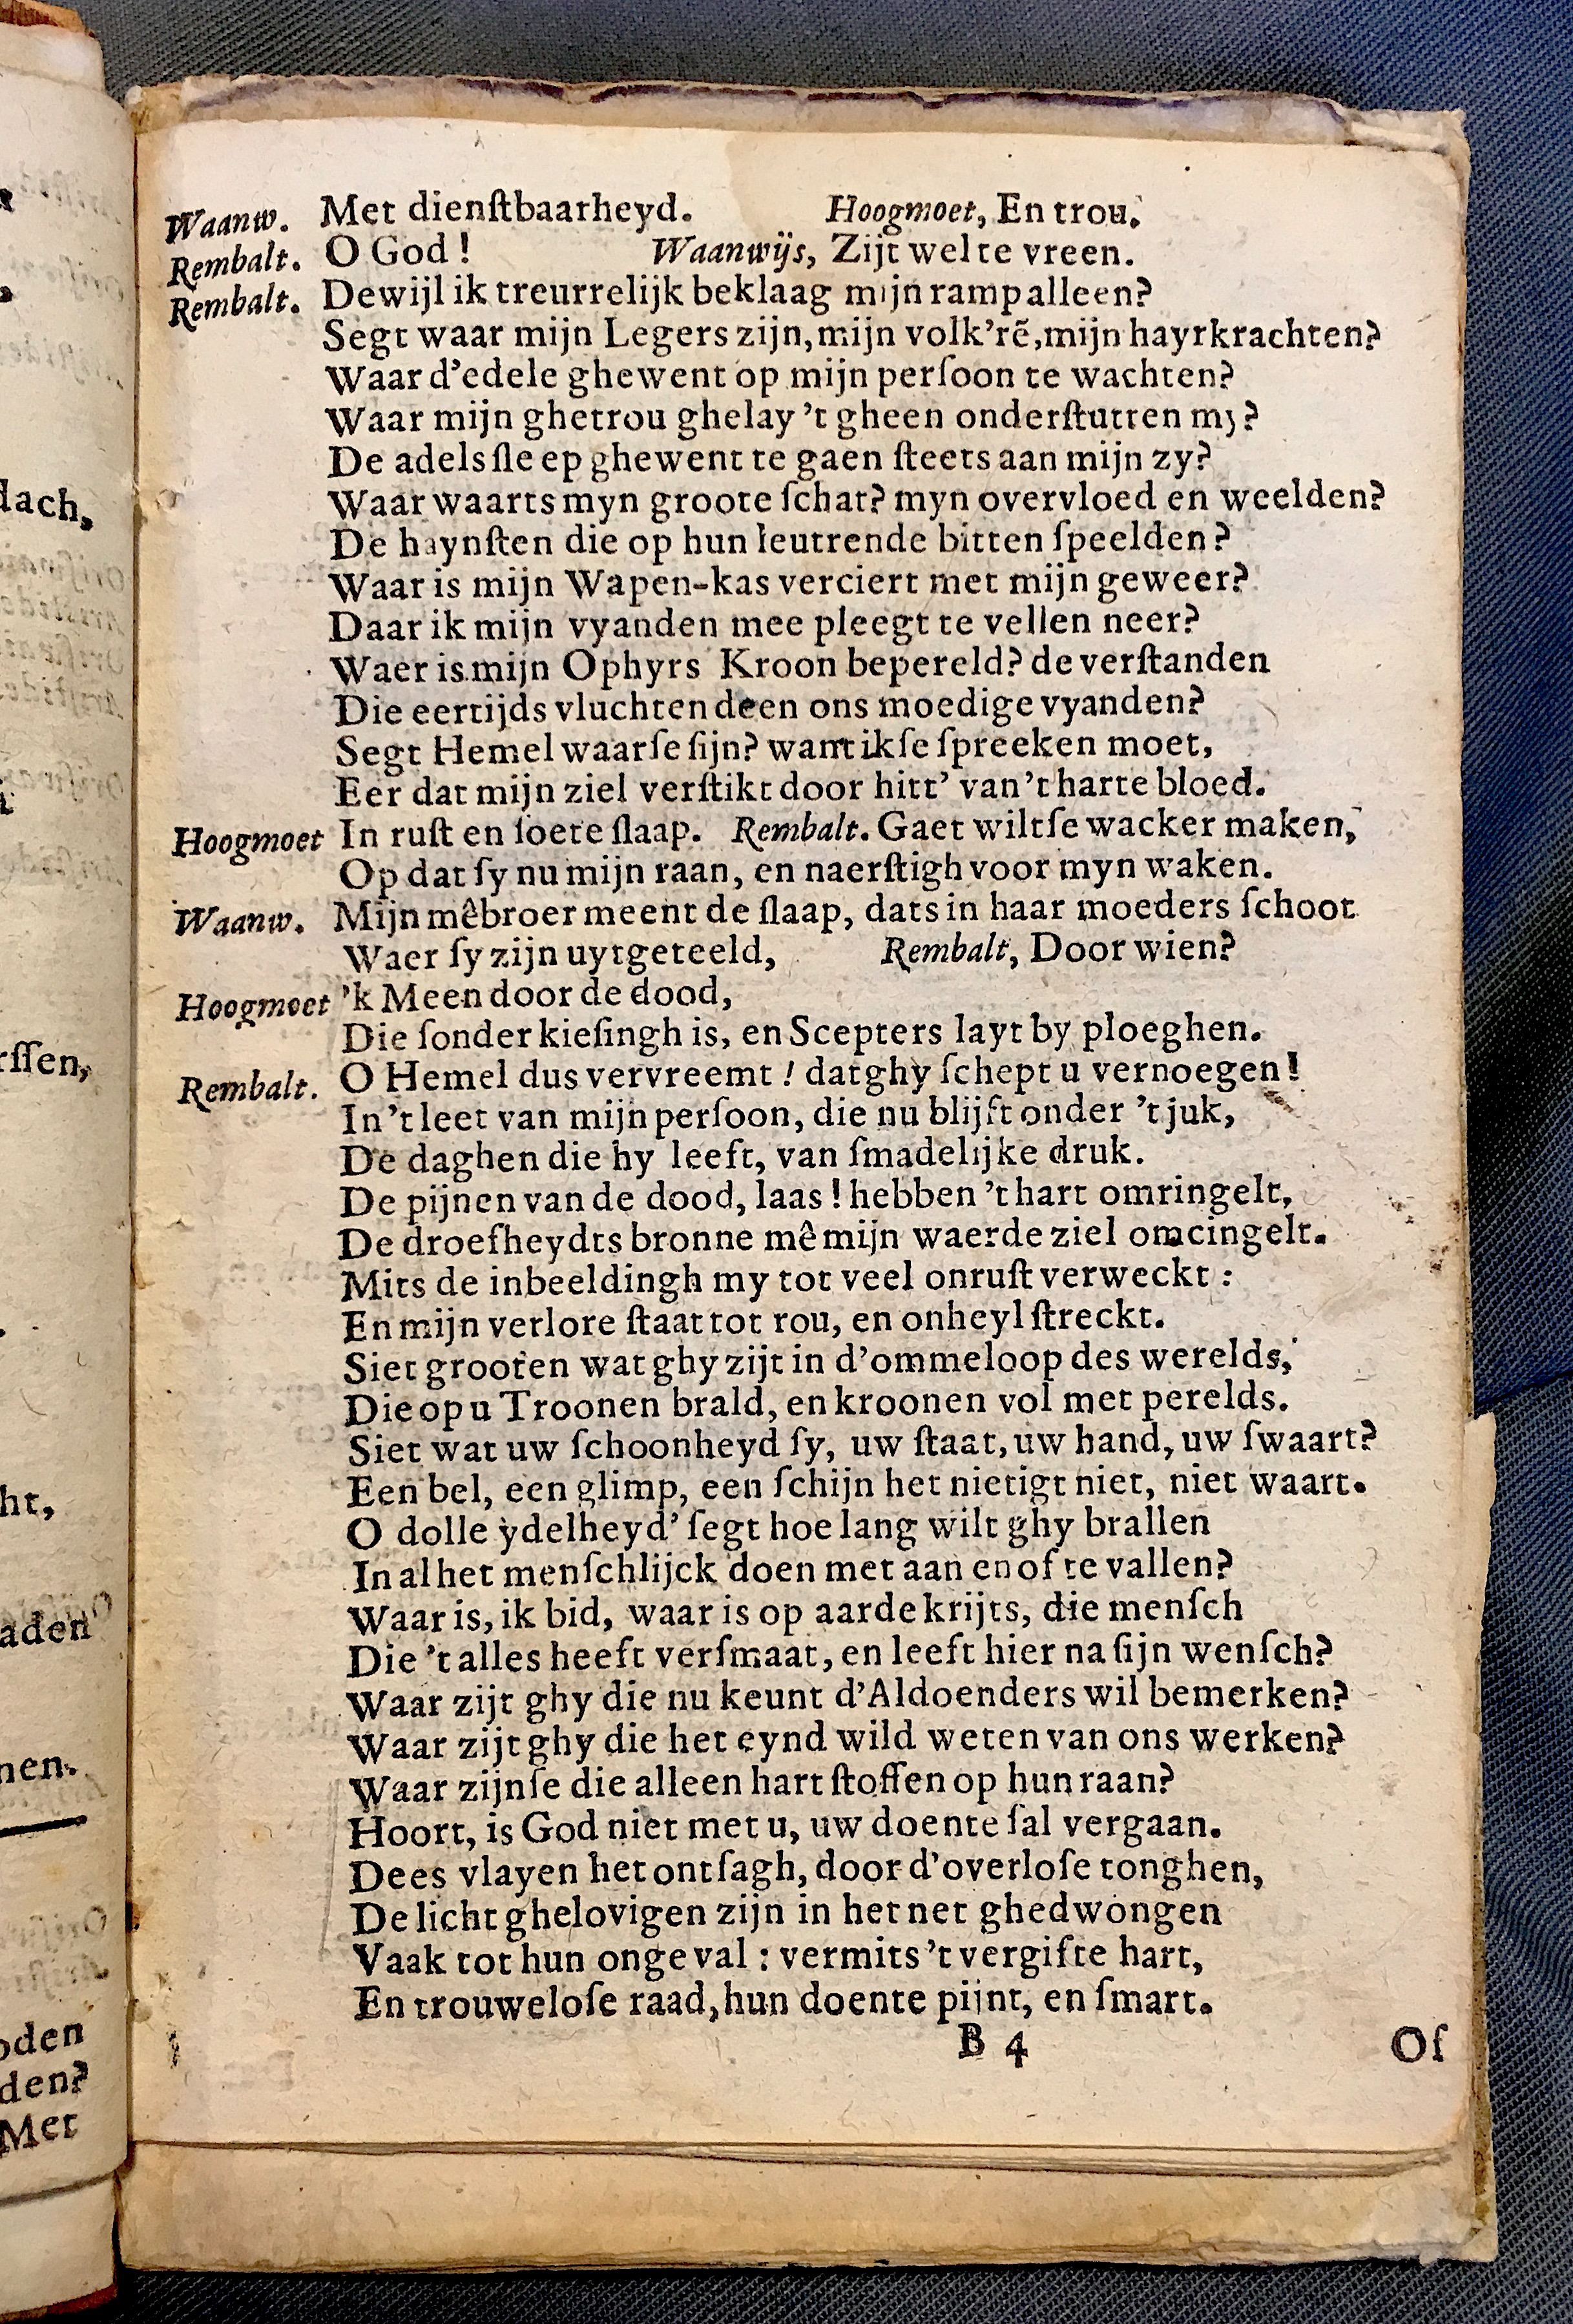 Waanw. Met dienſtbaarheyd. Hoogmoet, En trou.
Rembalt. O God! Waanwijs, Zijt wel te vreen.
Rembalt. Dewijl ik treurrelijk beklaag mijn ramp alleen?
Segt waar mijn Legers zijn, mijn volk'rẽ, mijn hayrkrachten?
Waar d'edele ghewent op mijn perſoon te wachten?
Waar mijn ghetrou ghelay 't gheen onderſtutten my?
De adels ſleep ghewent te gaen ſteets aan mijn zy?
Waar waarts myn groote ſchat? myn overvloed en weelden?
De haynſten die op hun leutrende bitten ſpeelden?
Waar is mijn Wapen-kas verciert met mijn geweer?
Daar ik mijn vyanden mee pleegt te vellen neer?
Waer is mijn Ophyrs Kroon bepereld? de verſtanden
Die eertijds vluchten deen ons moedige vyanden?
Segt Hemel waar ſe ſijn? want ik ſe ſpreeken moet,
Eer dat mijn ziel verſtikt door hitt' van 't harte bloed.
Hoogmoet In ruſt en ſoete ſlaap. Rembalt. Gaet wilt ſe wacker maken,
Op dat ſy nu mijn raan, en naerſtigh voor myn waken.
Waanw. Mijn mêbroer meent de ſlaap, dats in haar moeders ſchoot
Waer ſy zijn uytgeteeld, Rembalt, Door wien?
Hoogmoet 'k Meen door de dood,
Die ſonder kieſingh is, en Scepters layt by ploeghen.
Rembalt. O Hemel dus vervreemt! dat ghy ſchept u vernoegen!
In 't leet van mijn perſoon, die nu blijft onder 't juk,
De daghen die hy leeft, van ſmadelijke druk.
De pijnen van de dood, laas! hebben 't hart omringelt,
De droefheydts bronne mê mijn waerde ziel omcingelt.
Mits de inbeeldingh my tot veel onruſt verweckt:
En mijn verlore ſtaat tot rou, en onheyl ſtreckt.
Siet grooten wat ghy zijt in d'ommeloop des werelds,
Die op u Troonen brald, en kroonen vol met perelds.
Siet wat uw ſchoonheyd ſy, uw ſtaat, uw hand, uw ſwaart?
Een bel, een glimp, een ſchijn het nietigt niet, niet waart.
O dolle ydelheyd' ſegt hoe lang wilt ghy brallen
In al het menſchlijck doen met aan en of te vallen?
Waar is, ik bid, waar is op aarde krijts, die menſch
Die 't alles heeft verſmaat, en leeft hier na ſijn wenſch?
Waar zijt ghy die nu keunt d'Aldoenders wil bemerken?
Waar zijt ghy die het eynd wild weten van ons werken?
Waar zijnſe die alleen hart ſtoffen op hun raan?
Hoort, is God niet met u, uw doente ſal vergaan.
Dees vlayen het ontſagh, door d'overloſe tonghen,
De licht ghelovigen zijn in het net ghedwongen
Vaak tot hun ongeval: vermits 't vergifte hart,
En trouweloſe raad, hun doente pijnt, en ſmart.
B 4 Of
dach,
rſſen,
ht,
aden
nen.
oden
den?
Met